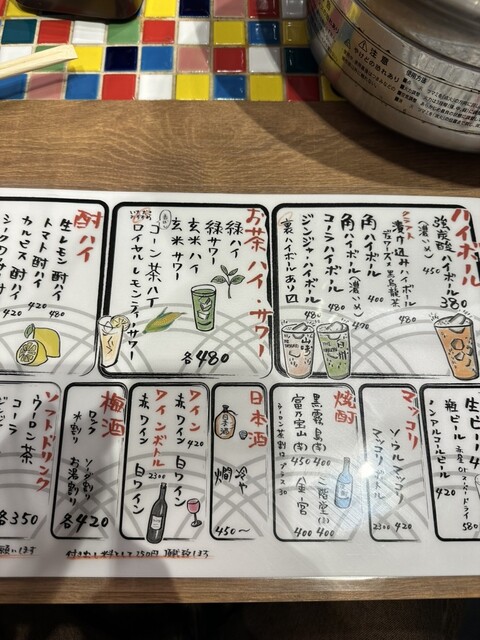 ハイボール
強炭酸ハイボール 380
(濃いめ) 450
クラフト
漬け込みハイボール 480
デュワーズ×黒烏龍茶
角ハイボール 400
角ハイボール(濃いめ) 470
コーラハイボール 480
ジンジャーハイボール 480
裏ハイボールあり〼
お茶ハイ・サワー
緑ハイ
緑サワー
玄米ハイ
玄米サワー
コーン茶ハイ
ロイヤルレモンティーサワー
各480
酎ハイ
生レモン酎ハイ 480
トマト酎ハイ 420
カルピス酎ハイ 420
シークワサー酎ハイ 420
生ビール
瓶ビール 580
ノンアルコールビール 420
マッコリ
ソウルマッコリ 420
マッコリボトル 2300
焼酎
黒霧島(芋) 400
二階堂(麦) 400
富乃宝山(芋) 450
金宮 400
コーン茶割 プラス30
日本酒
冷や
燗
450〜
ワイン
赤ワイン 白ワイン 420
ワインボトル
赤ワイン 白ワイン 2300
梅酒
ロック ソーダ割り
水割り お湯割り
各420
ソフトドリンク
ウーロン茶
コーラ
各350
付きだし料として250円頂戴します
願いします
注意
やけどの恐れあり
使用方法